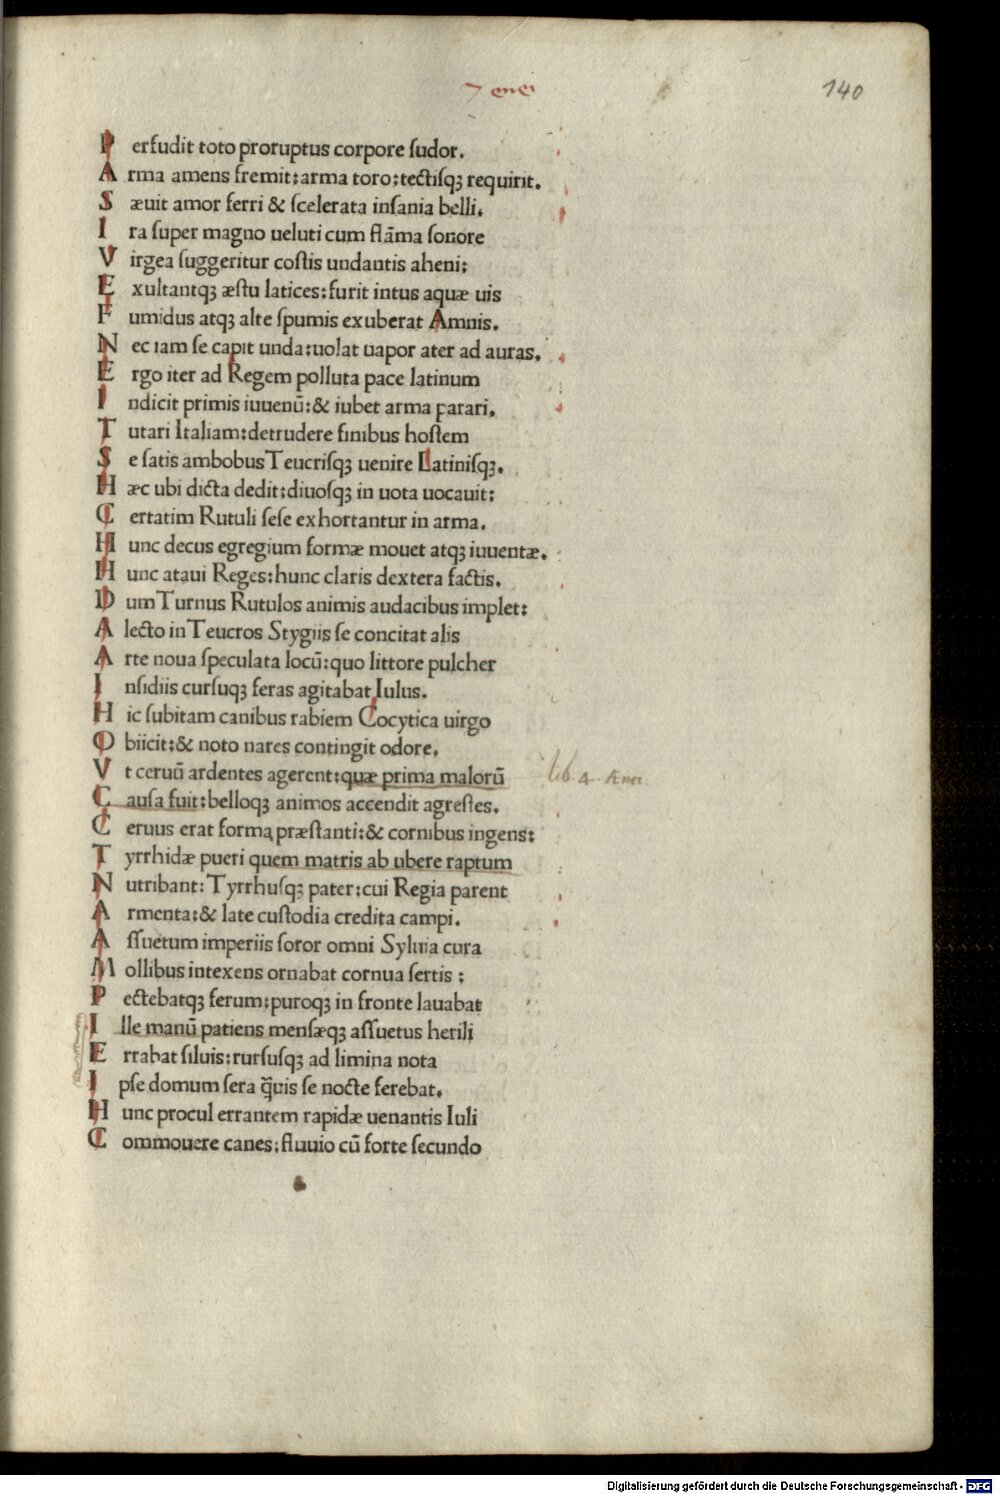 7 enei
140
P erfudit toto proruptus corpore ſudor.
A rma amens fremit:arma toro:tectiſqꝫ requirit.
S æuit amor ferri & ſcelerata inſania belli.
I ra ſuper magno ueluti cum flāma ſonore
V irgea ſuggeritur coſtis undantis aheni:
E xultantqꝫ æſtu latices:furit intus aquæ uis
F umidus atqꝫ alte ſpumis exuberat Amnis.
N ec iam ſe capit unda:uolat uapor ater ad auras.
E rgo iter ad Regem polluta pace latinum
I ndicit primis iuuenū:& iubet arma parari.
T utari Italiam:detrudere finibus hoſtem
S e ſatis ambobus Teucriſqꝫ uenire Latiniſqꝫ.
H æc ubi dicta dedit:diuoſqꝫ in uota uocauit:
C ertatim Rutuli ſeſe exhortantur in arma.
H unc decus egregium formæ mouet atqꝫ iuuentæ.
H unc ataui Reges:hunc claris dextera factis.
D um Turnus Rutulos animis audacibus implet:
A lecto in Teucros Stygiis ſe concitat alis
A rte noua ſpeculata locū:quo littore pulcher
I nſidiis curſuqꝫ feras agitabat Iulus.
H ic ſubitam canibus rabiem Cocytica uirgo
O biicit:& noto nares contingit odore.
V t ceruū ardentes agerent:quæ prima malorū
lib. 4. Ænei.
C auſa fuit:belloqꝫ animos accendit agreſtes.
C eruus erat forma præſtanti:& cornibus ingens:
T yrrhidæ pueri quem matris ab ubere raptum
N utribant:Tyrrhuſqꝫ pater:cui Regia parent
A rmenta:& late cuſtodia credita campi.
A ſſuetum imperiis ſoror omni Syluia cura
M ollibus intexens ornabat cornua ſertis:
P ectebatqꝫ ferum:puroqꝫ in fronte lauabat
I lle manū patiens menſæqꝫ aſſuetus herili
E rrabat ſiluis:rurſuſqꝫ ad limina nota
I pſe domum ſera q̄uis ſe nocte ferebat.
H unc procul errantem rapidæ uenantis Iuli
C ommouere canes:fluuio cū forte ſecundo
Digitalisierung gefördert durch die Deutsche Forschungsgemeinschaft - DFG